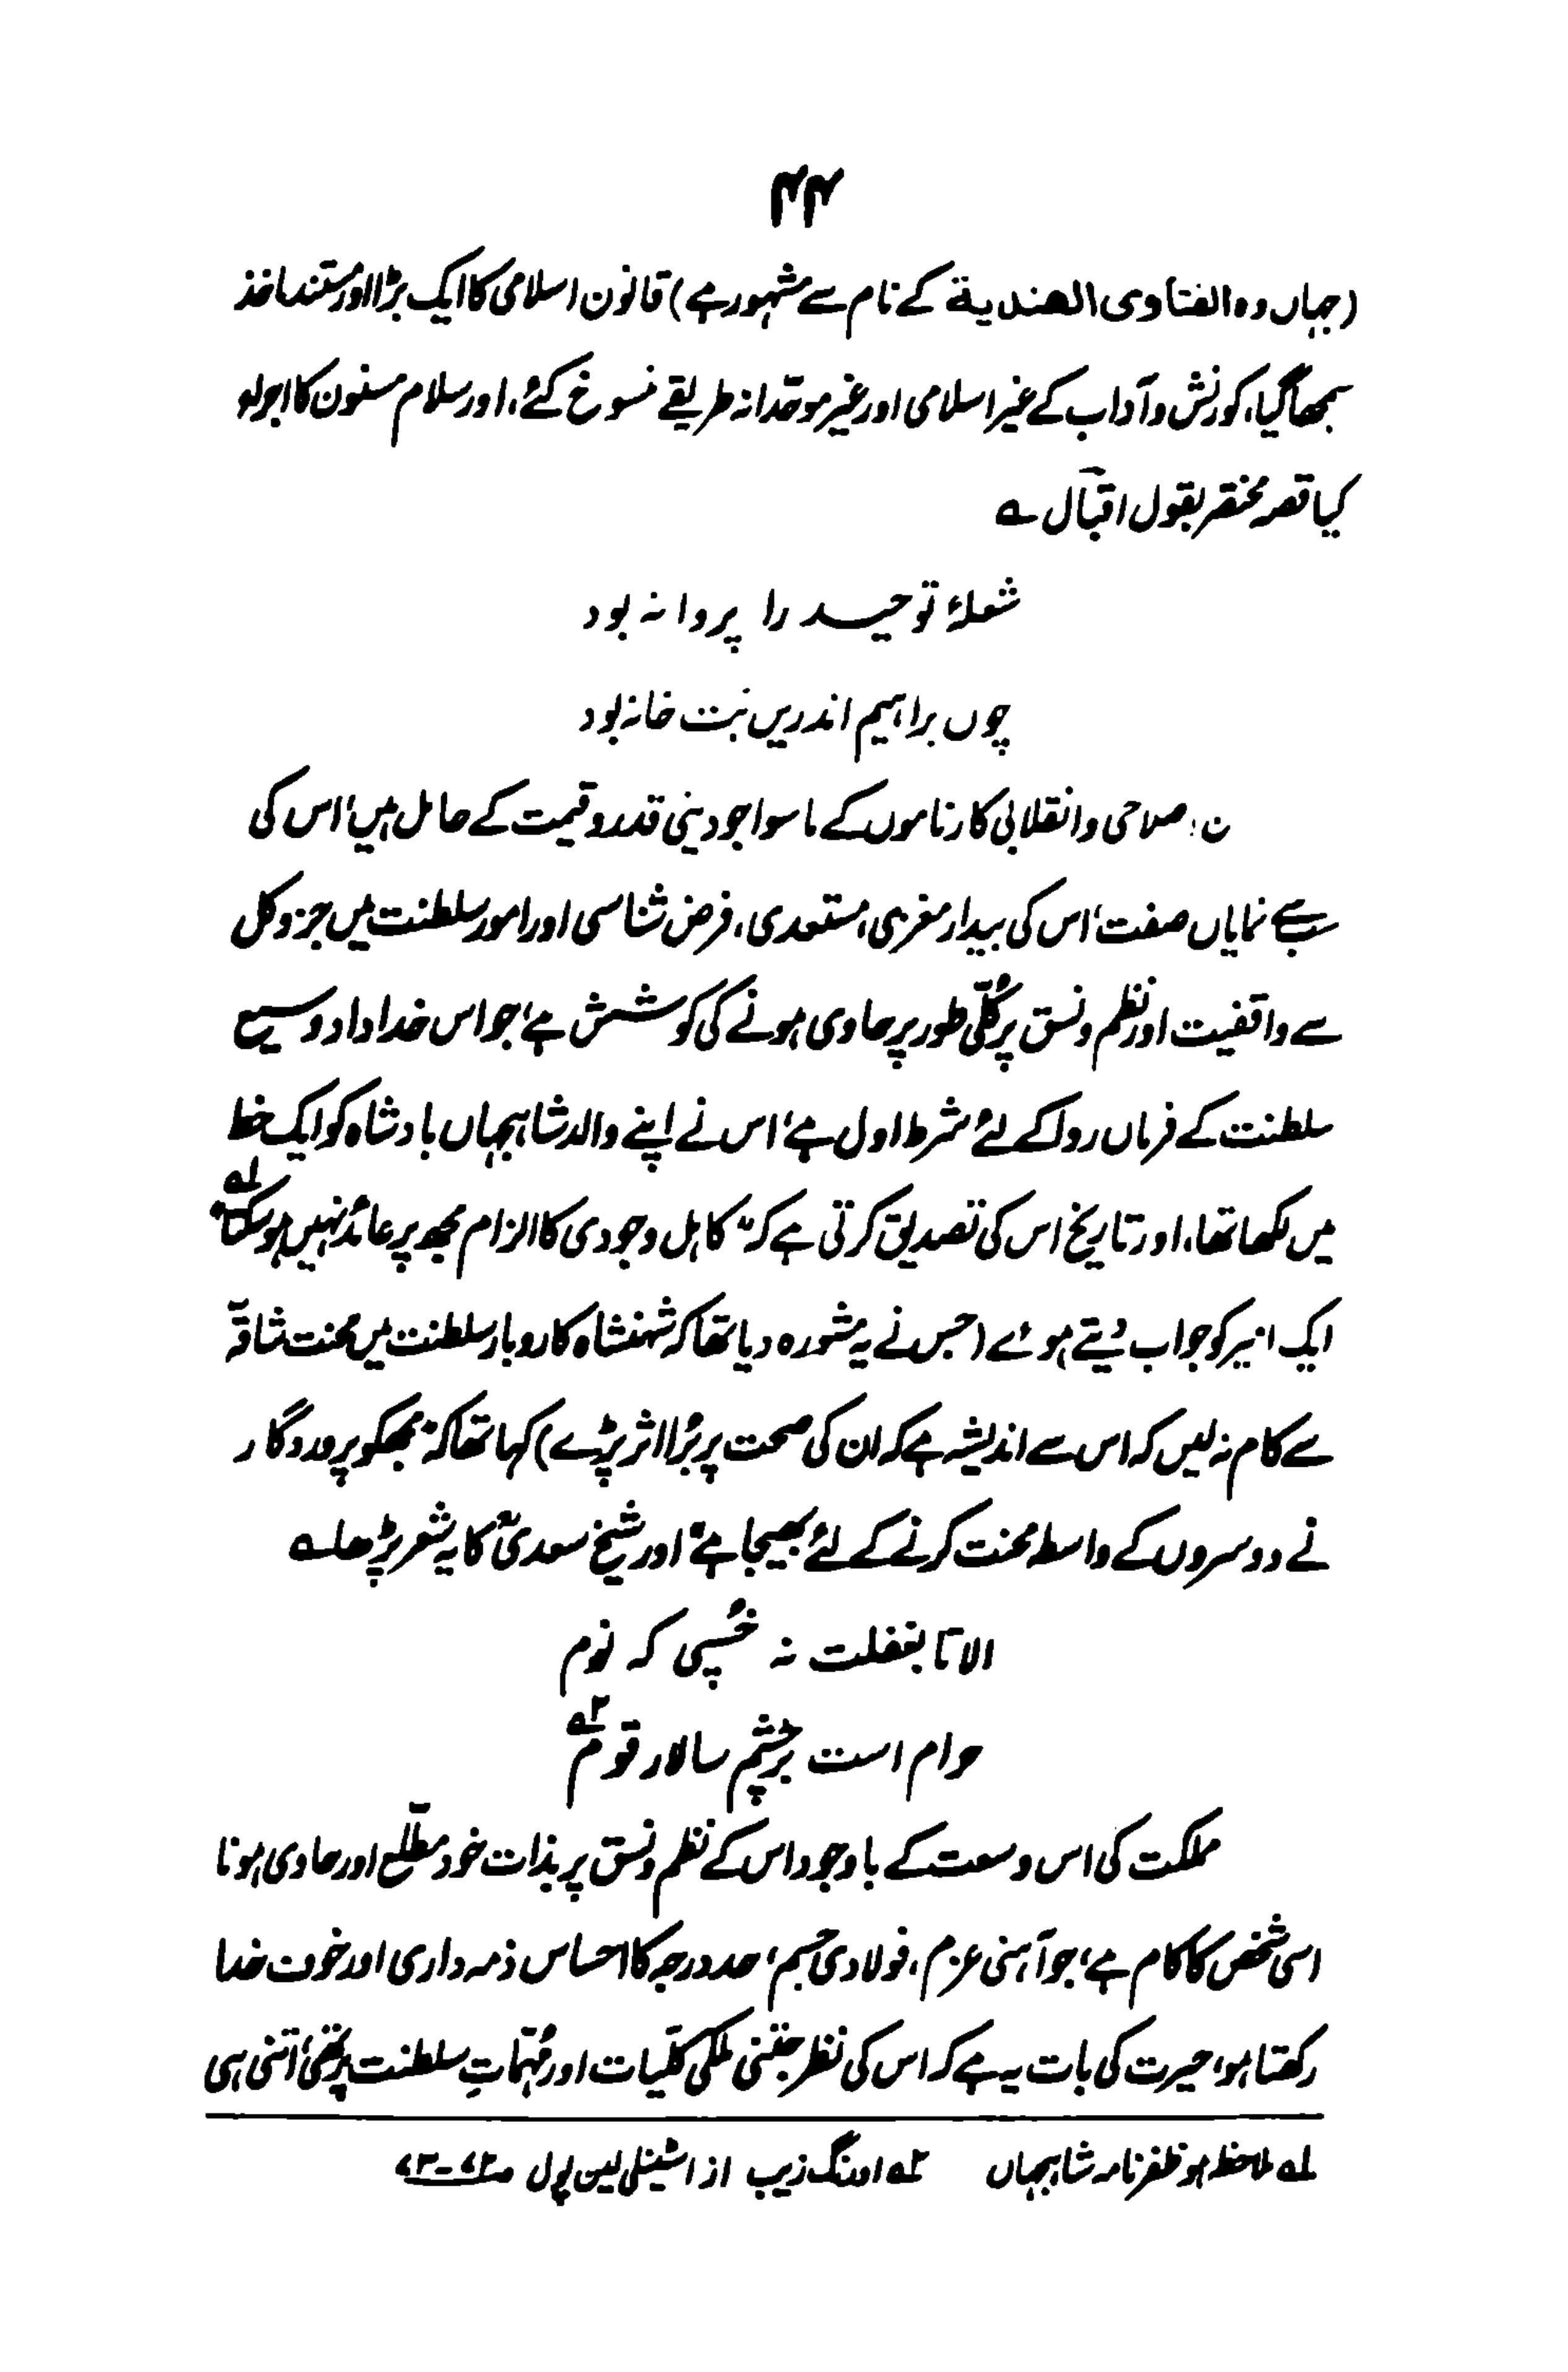 ۴۴
(جہاں وہ الفتاوی الھندیۃ کے نام سے مشہور ہے) قانون اسلامی کا ایک بڑا اور مستند ماخذ
سمجھا گیا، کورنش و آداب کے غیر اسلامی اور غیر موحّدانہ طریقے منسوخ کئے، اور سلام مسنون کا اجراء
کیا قصہ مختصر بقول اقبال ؎
شعلۂ توحید را پروانہ بود
چوں براہیم اندریں بت خانہ بود
ن اصلاحی و انقلابی کارناموں کے ماسوا جو دینی قدر و قیمت کے حامل ہیں، اس کی
سب سے نمایاں صفت، اس کی بیدار مغزی، مستعدی، فرض شناسی اور امور سلطنت میں جزو کل
سے واقفیت اور نظم و نسق پر کُلّی طور پر حاوی ہونے کی کوشش ہے، جو اس خداداد وسیع
سلطنت کے فرماں روا کے لئے شرط اول ہے، اس نے اپنے والد شاہجہاں بادشاہ کو ایک خط
میں لکھا تھا، اور تاریخ اس کی تصدیق کرتی ہے کہ "کاہل وجودی کا الزام مجھ پر عائد نہیں ہو سکتا" ۱؎
ایک امیر کو جواب دیتے ہوئے (جس نے یہ مشورہ دیا تھا کہ شہنشاہ کاروبار سلطنت میں محنت شاقّہ
سے کام نہ لیں کہ اس سے اندیشہ ہے کہ ان کی صحت پر بُرا اثر پڑے) کہا تھا کہ "مجھکو پروردگار
نے دوسروں کے واسطے محنت کرنے کے لئے بھیجا ہے" اور شیخ سعدیؒ کا یہ شعر پڑھا ؎
الا تا بغفلت نہ خُسپی کہ نوم
حرام است بر چشم سالار قوم ۲؎
مملکت کی اس وسعت کے باوجود اس کے نظم و نسق پر بذات خود مطّلع اور حاوی ہونا
اسی شخص کا کام ہے، جو آہنی عزم، فولادی جسم، حد درجہ کا احساس ذمہ داری اور خوف خدا
رکھتا ہو، حیرت کی بات یہ ہے کہ اس کی نظر جتنی ملکی کلّیات اور مُہمّاتِ سلطنت پر تھی، اتنی ہی
۱؎ ملاحظہ ہو ظفر نامہ شاہجہاں ۲؎ اورنگ زیب از اسٹینلی لین پول